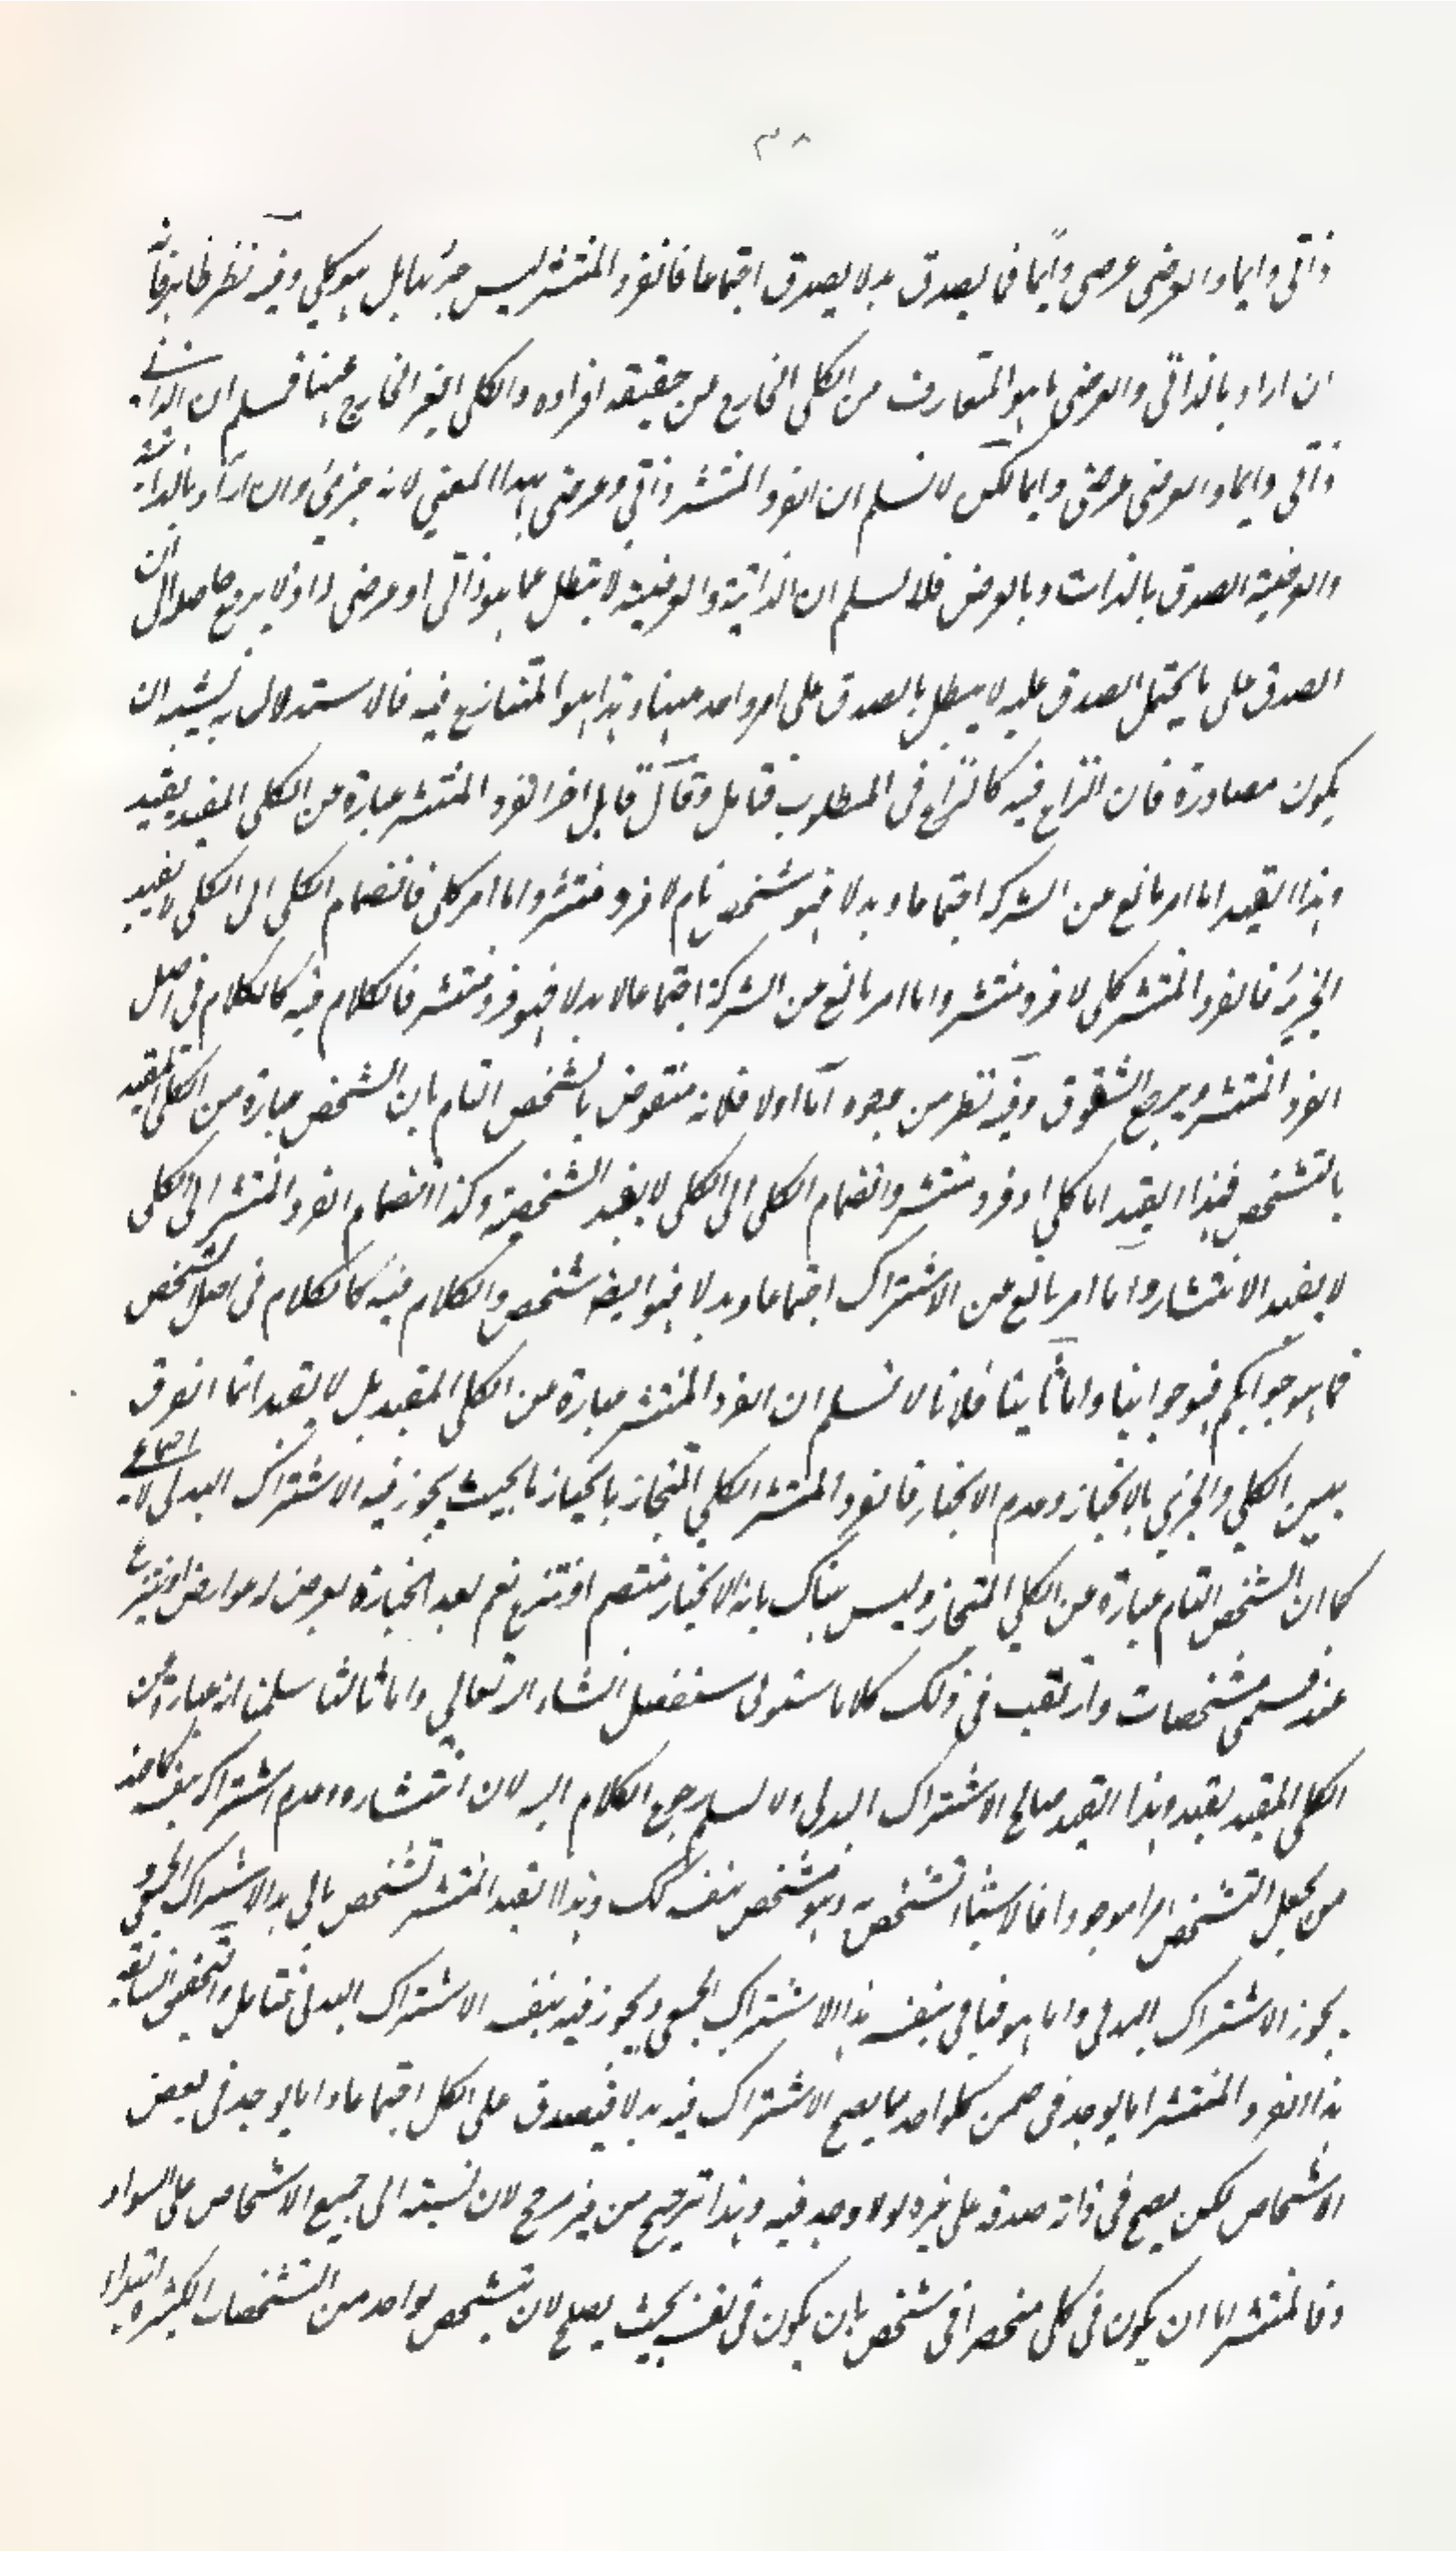 ٣٨
ذاتي دايما والعرضي عرضي دايمًا فما يصدق بدلا يصدق اجتماعا فالفرد المنتشر ليس جزئيا بل هو كلي وفيه نظر ظاهر فانه
ان اراد بالذاتي والعرضي ما هو المتعارف من الكلي الخارج عن حقيقة افراده والكلي الغير الخارج عنها فمسلم ان الذاتي
ذاتي دايما والعرضي عرضي دايما لكن لا نسلم ان الفرد المنتشر ذاتي وعرضي بهذا المعني لانه جزئي وان اراد بالذاتية
والعرضية الصدق بالذات وبالعرض فلا نسلم ان الذاتية والعرضية لا تبطل عما هو ذاتي او عرضي اذ لا يرجع حاصله الى ان
الصدق على ما يحتمل الصدق عليه لا يبطل بالصدق على امر واحد معينا وهذا هو المتنازع فيه فالاستدلال به يشبه ان
يكون مصادرة فان النزاع فيه كالنزاع في المطلوب فتامل وقال قايل اخر الفرد المنتشر عبارة عن الكلي المقيد بقيد
وهذا القيد اما امر مانع عن الشركة اجتماعا وبدلا فهو شخص تام لا فرد منتشر واما امر كلي فانضمام الكلي الى الكلي لا يفيد
الجزئية فالفرد المنتشر كلي لا فرد منتشر واما امر مانع عن الشركة اجتماعا لا بدلا فهو فرد منتشر فالكلام فيه كالكلام في اصل
الفرد المنتشر ويرجع الشقوق وفيه نظر من وجوه اما اولا فلانه منقوض بالشخص التام بان الشخص عبارة عن الكلي المقيد
بالتشخص فهذا القيد اما كلي او فرد منتشر وانضمام الكلي الى الكلي لا يفيد الشخصية وكذا انضمام الفرد المنتشر الى الكلي
لا يفيد الانتشار واما امر مانع عن الاشتراك اجتماعا وبدلا فهو ايضا شخص والكلام فيه كالكلام في اصل الشخص
فما هو جوابكم فهو جوابنا واما ثانيا فلانا لا نسلم ان الفرد المنتشر عبارة عن الكلي المقيد بل لا يقيد انما الفرق
بين الكلي والجزئي بالانحياز وعدم الانحياز فالفرد المنتشر الكلي المنحاز بانحياز ما بحيث يجوز فيه الاشتراك البدلي لا الاجتماعي
كما ان الشخص التام عبارة عن الكلي المنحاز وليس هناك ما به الانحياز منضم او منتزع نعم بعد انحيازه يعرض له عوارض او ينتزع
عنه فسمي مشخصات وارتقب في ذلك كلاما ستولى سنفصل انشاء الله تعالى واما ثالثا سلمنا انه عبارة عن
الكلي المقيد بقيد وهذا القيد صالح الاشتراك البدلي ولا نسلم رجع الكلام اليه لان انتشاره وعدم اشتراكه بنفسه كما عند
من يجعل التشخص امرا موجودا فالاشياء تشخص به وهو متشخص بنفسه كك وهذا القيد المنتشر تشخص ما لي هذا الاشتراك الجمعي و
يجوز الاشتراك البدلي واما هو فيابى بنفسه هذا الاشتراك الجمعي ويجوز فيه بنفسه الاشتراك البدلي فتامل والتحقيق انه
هذا الفرد المنتشر اما يوجد في ضمن كلواحد مما يصح الاشتراك فيه بدلا فيصدق على الكل اجتماعا واما يوجد في بعض
الاشخاص لكن يصح في ذاته صدقه على غيره لولا وجد فيه وهذا ترجيح من غير مرجح لان نسبته الى جميع الاشخاص على السواء
وفالمنتشر اما ان يكون في كلي منحصرا في شخص بان يكون في نفسه بحيث يصلح لان يتشخص بواحد من التشخصات الكثيرة ابتداء